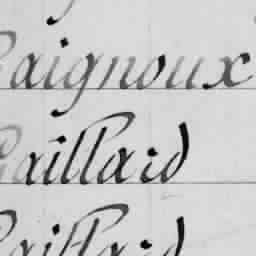 Gaignoux
Gaillard
Gaillard